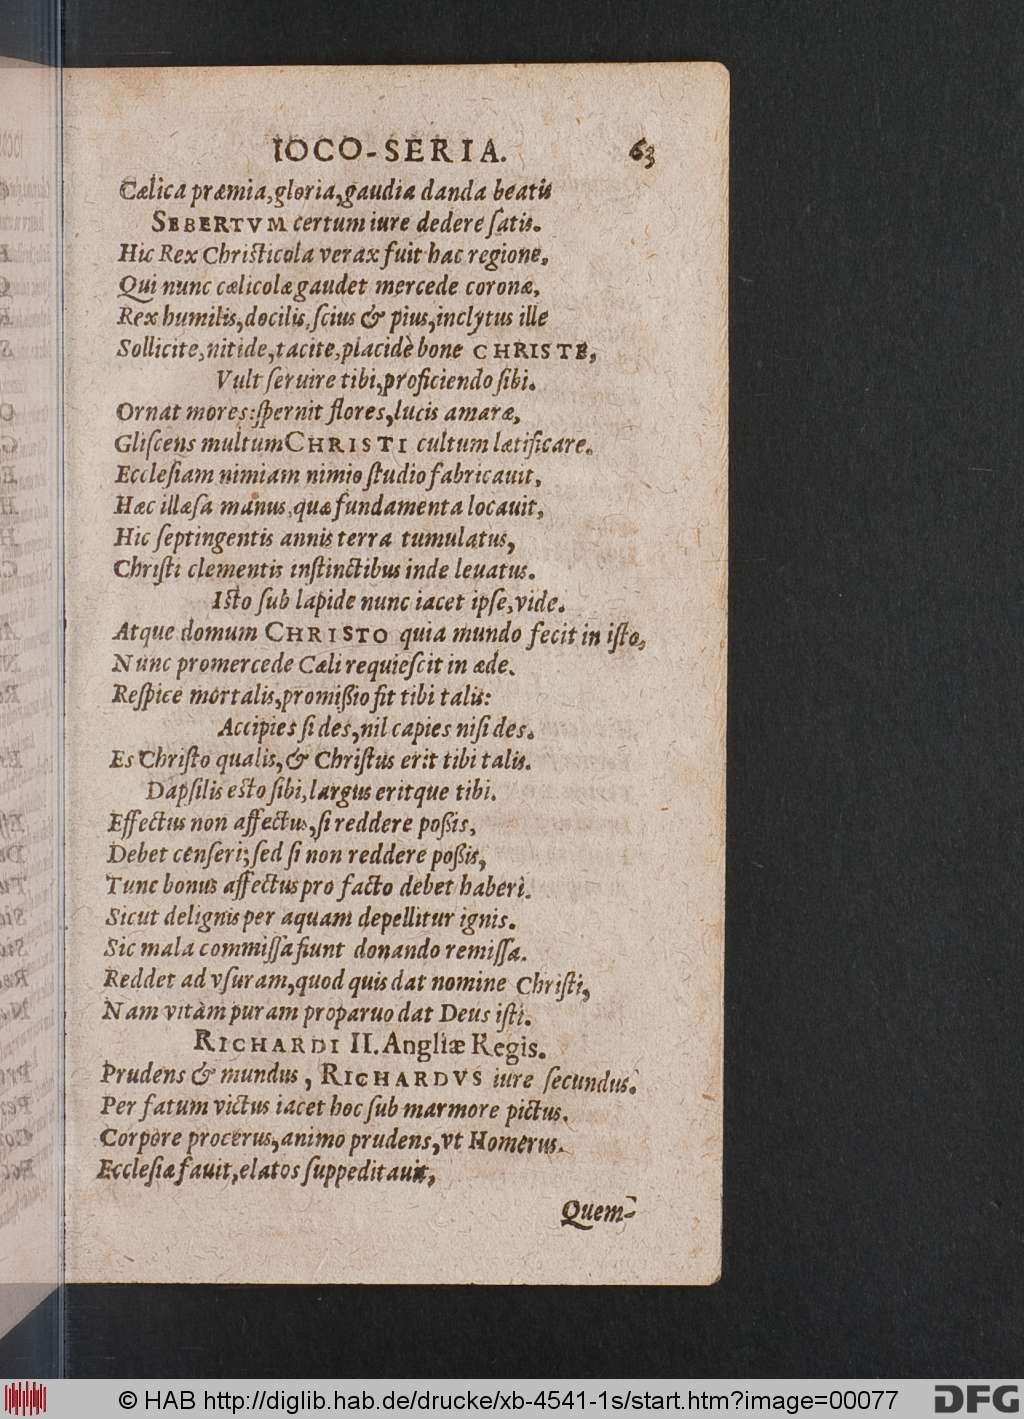 IOCO-SERIA. 63
Cælica præmia, gloria, gaudia danda beatis
SEBERTVM certum iure dedere ſatis.
Hic Rex Chriſticola verax fuit hac regione,
Qui nunc cælicolæ gaudet mercede coronæ,
Rex humilis, docilis, ſcius & pius, inclytus ille
Sollicite, nitide, tacite, placidè bone CHRISTE,
Vult ſeruire tibi, proficiendo ſibi.
Ornat mores: ſpernit flores, lucis amaræ,
Gliſcens multum CHRISTI cultum lætificare.
Eccleſiam nimiam nimio ſtudio fabricauit,
Hæc illæſa manus, quæ fundamenta locauit,
Hic ſeptingentis annis terra tumulatus,
Chriſti clementis inſtinctibus inde leuatus.
Iſto ſub lapide nunc iacet ipſe, vide.
Atque domum CHRISTO quia mundo fecit in iſto,
Nunc promercede Cæli requieſcit in æde.
Reſpice mortalis, promißio fit tibi talis:
Accipies ſi des, nil capies niſi des.
Es Chriſto qualis, & Chriſtus erit tibi talis.
Dapſilis eſto ſibi, largus eritque tibi.
Effectus non affectus, ſi reddere poßis,
Debet cenſeri; ſed ſi non reddere poßis,
Tunc bonus affectus pro facto debet haberi.
Sicut de lignis per aquam depellitur ignis.
Sic mala commiſſa fiunt donando remiſſa.
Reddet ad vſuram, quod quis dat nomine Chriſti,
Nam vitàm puram proparuo dat Deus iſti.
RICHARDI II. Angliæ Regis.
Prudens & mundus, RICHARDVS iure ſecundus.
Per fatum victus iacet hoc ſub marmore pictus.
Corpore procerus, animo prudens, vt Homerus.
Eccleſiæ fauit, elatos ſuppeditauit,
Quem-
© HAB http://diglib.hab.de/drucke/xb-4541-1s/start.htm?image=00077
DFG